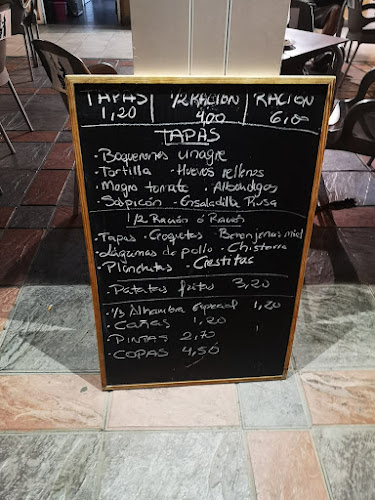 TAPAS 1/2 RACION RACION
1,20 4,00 6,00
TAPAS
· Boquerones vinagre
· Tortilla · Huevos rellenos
· Magro tomate · Albondigas
· Salpicón · Ensaladilla Rusa
1/2 Ración ó Ración
· Tapas · Croquetas · Berenjenas miel
· Lágrimas de pollo · Chistorra
· Planchitas · Crestitas
Patatas fritas 3,20
· 1/3 Alhambra especial 1,20
· CAÑAS 1,20
· PINTAS 2,70
· COPAS 4,50